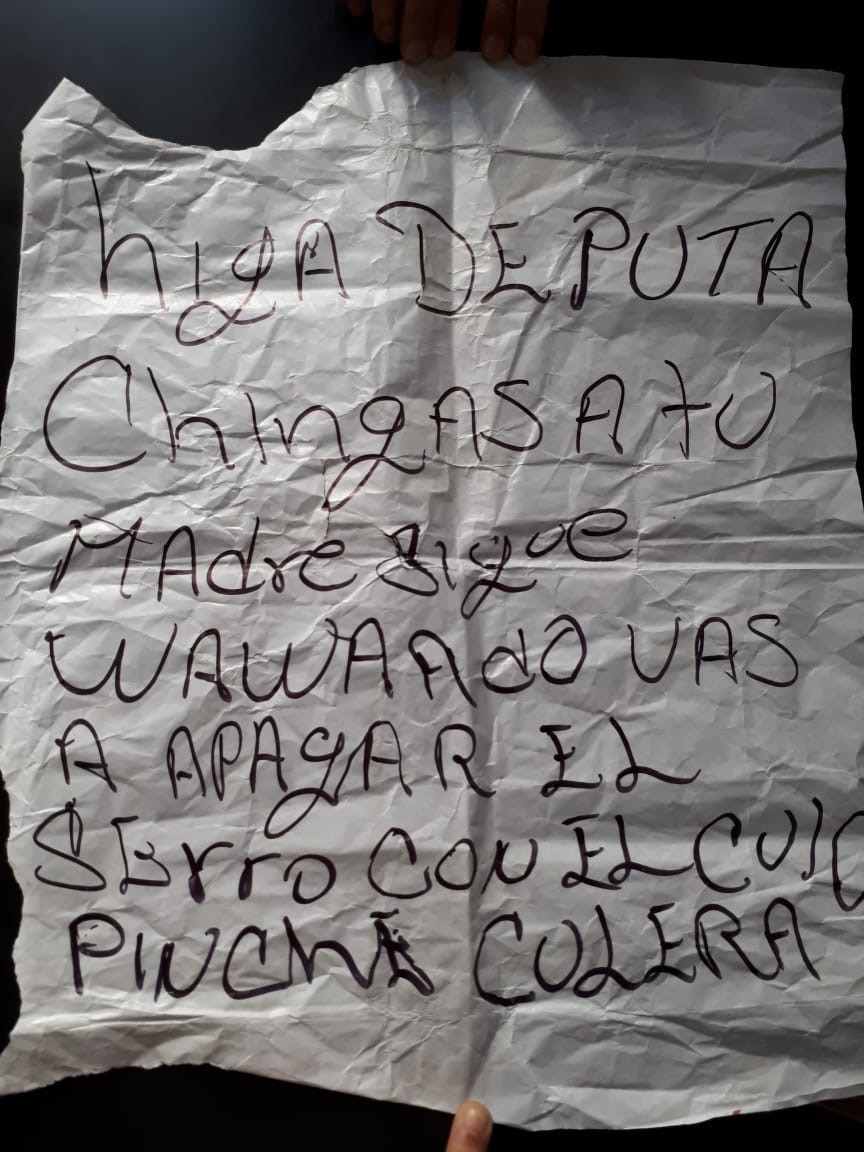 higA DEPUTA
ChingAS A tU
MAdre Sigue
WAWAndO VAS
A APAgAR EL
SErro CON EL CUlO
PINChE CULERA